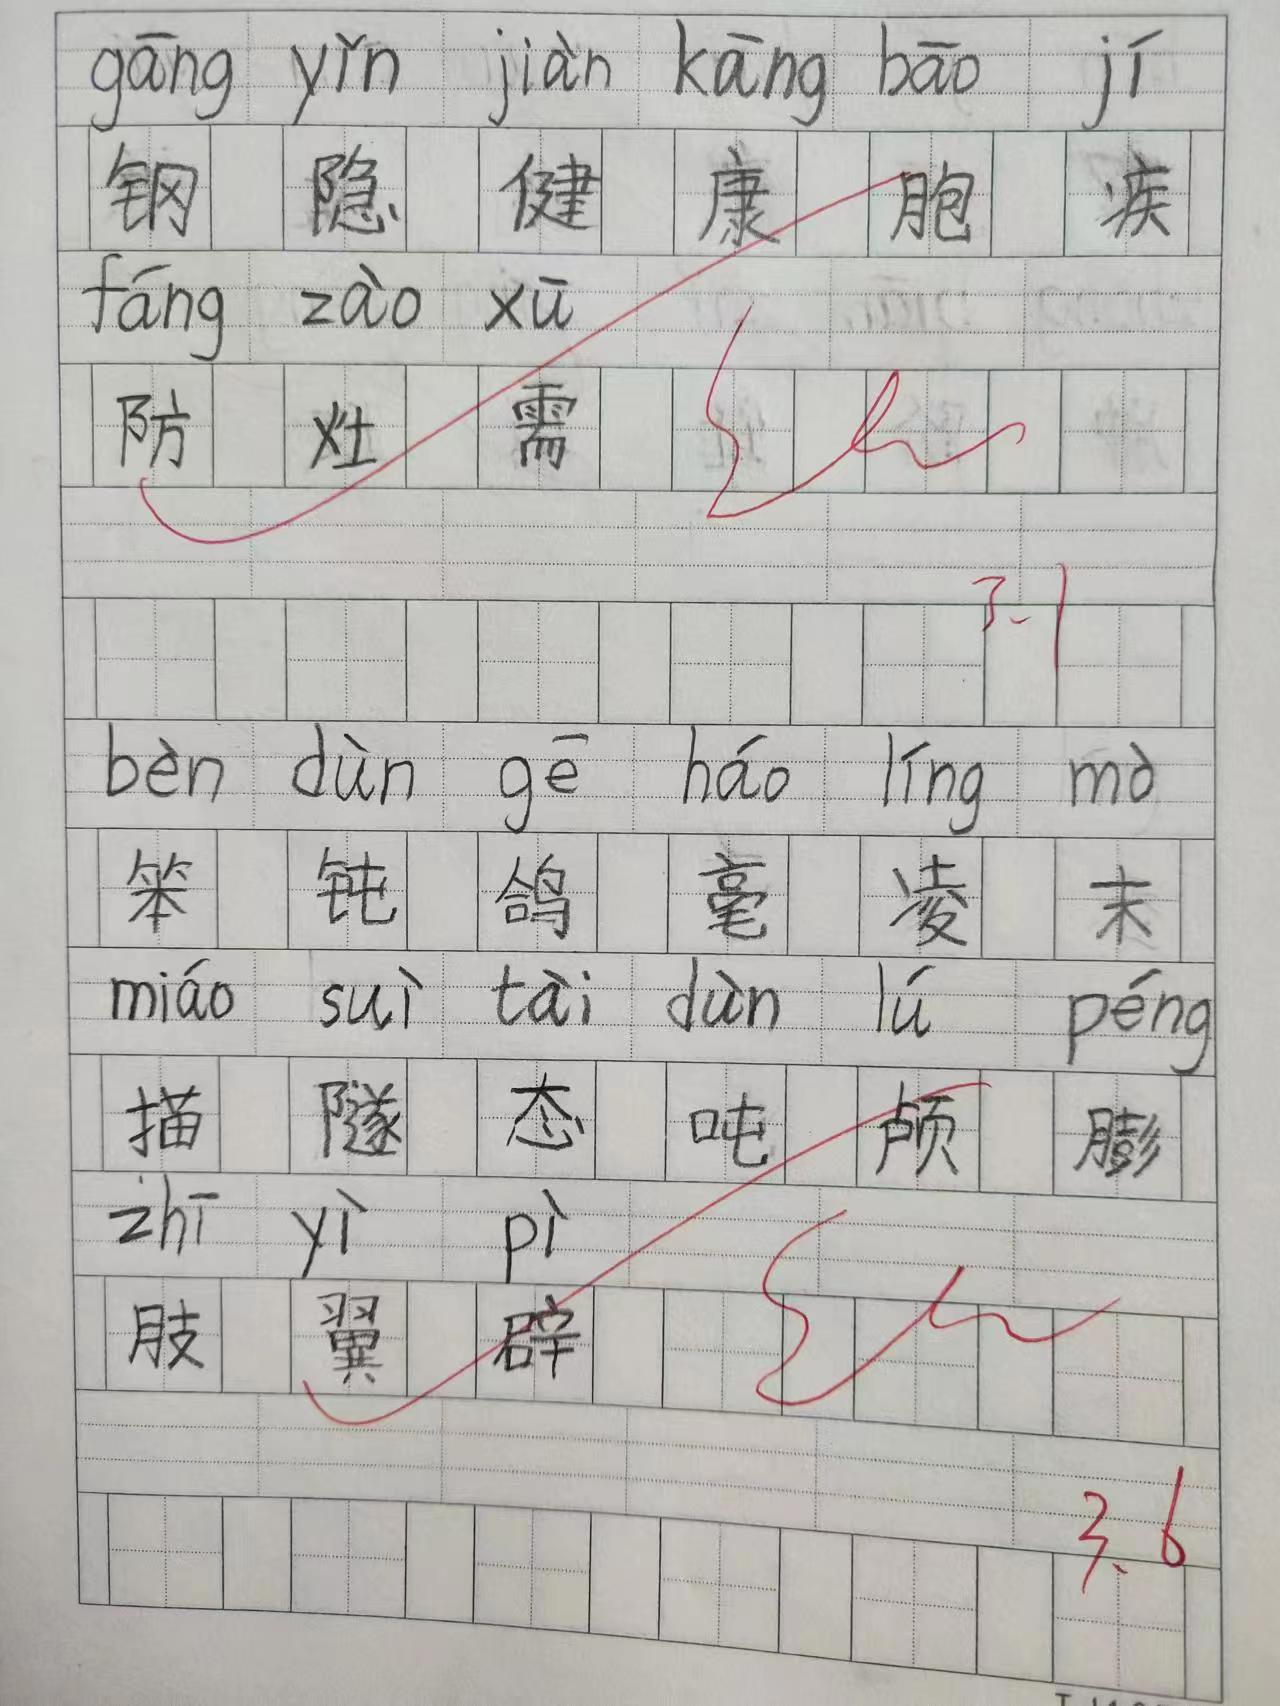 gāng yǐn jiàn kāng bāo jí
钢 隐 健 康 胞 疾
fáng zào xū
防 灶 需
3.1
bèn dùn gē háo líng mò
笨 钝 鸽 毫 凌 末
miáo suì tài dùn lú péng
描 隧 态 吨 颅 膨
zhī yì pì
肢 翼 辟
3.6